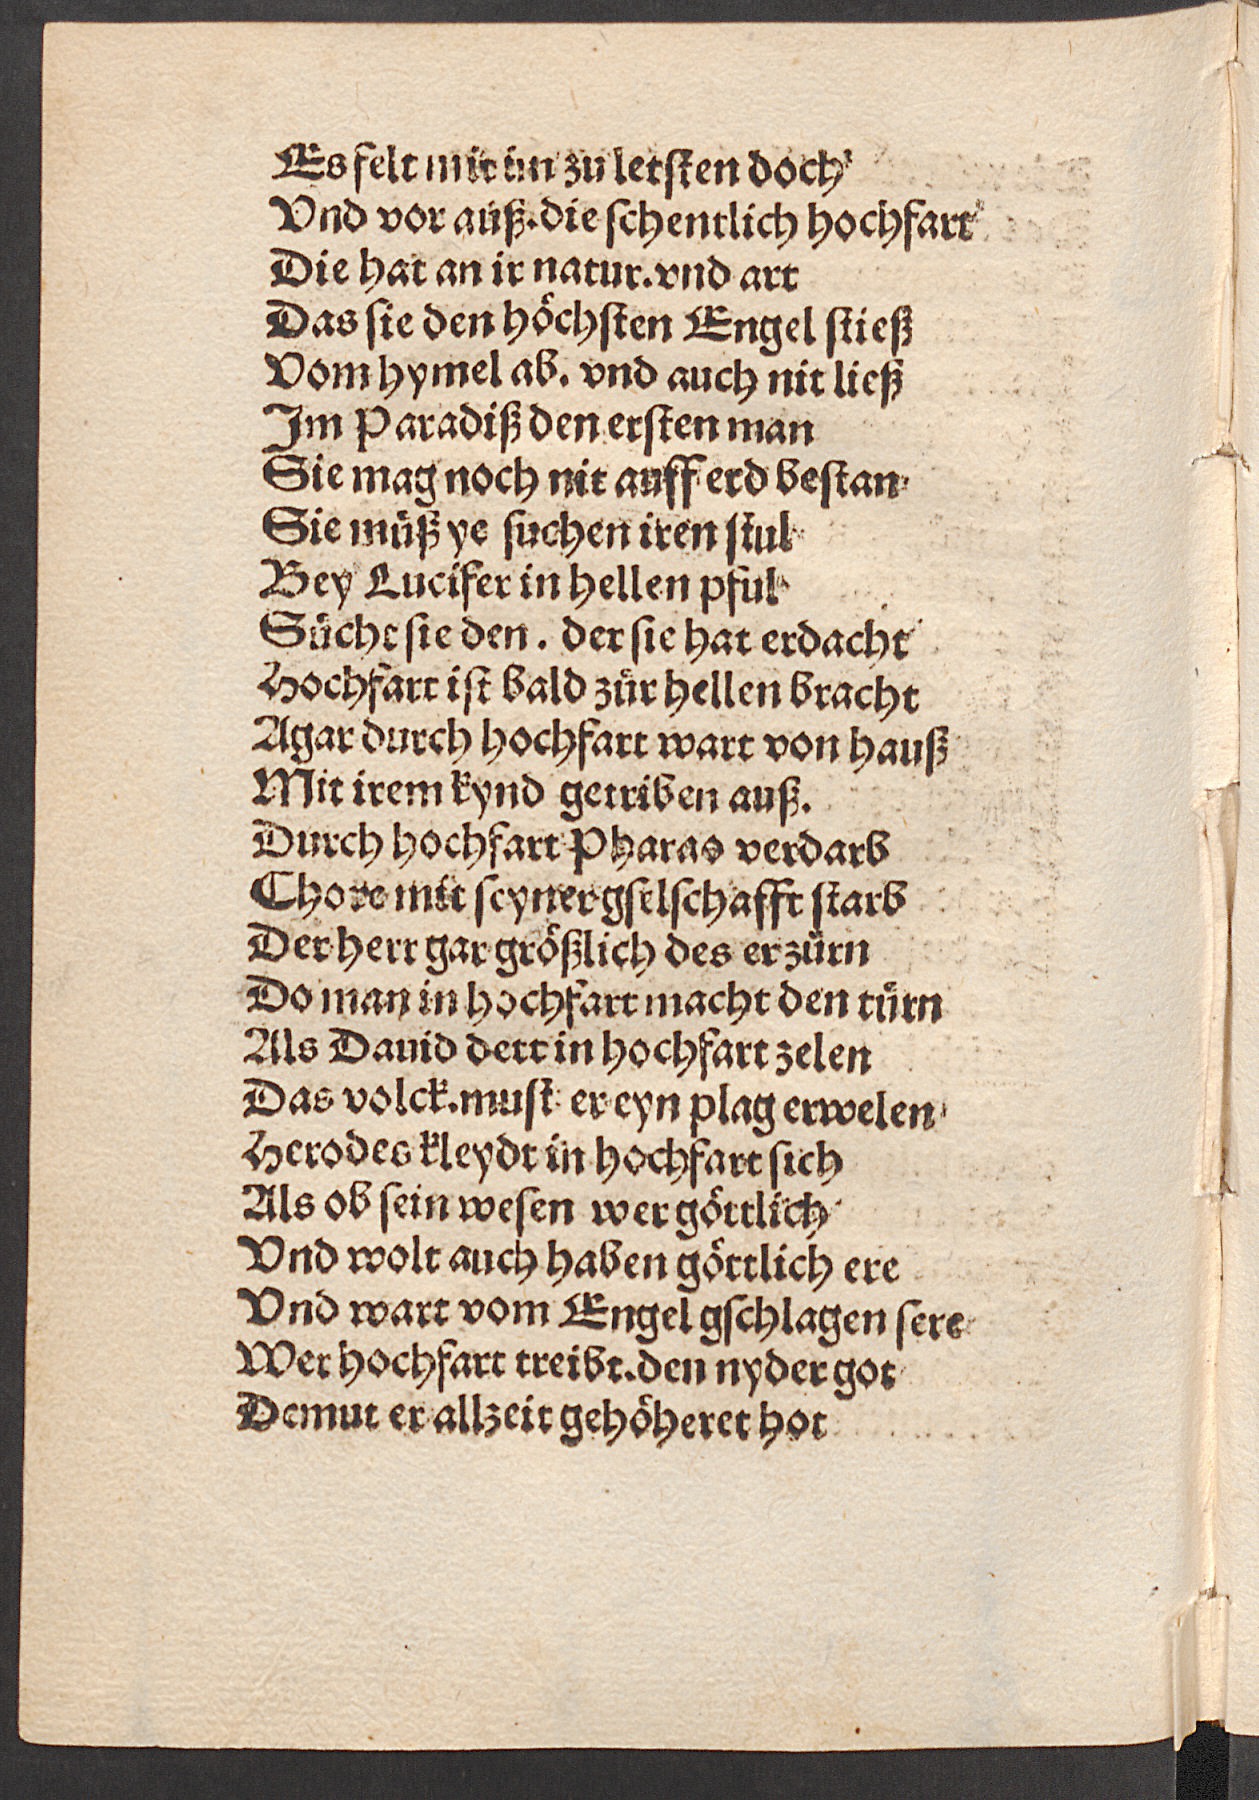 Es felt mit im zu letsten doch
Vnd vor auß. die schentlich hochfart
Die hat an ir natur. vnd art
Das sie den höchsten Engel stieß
Vom hymel ab. vnd auch nit ließ
Im Paradiß den ersten man
Sie mag noch nit auff erd bestan
Sie müß ye suchen iren stul
Bey Lucifer in hellen pful
Sücht sie den. der sie hat erdacht
Hochfart ist bald zür hellen bracht
Agar durch hochfart wart von hauß
Mit irem kynd getriben auß.
Durch hochfart Pharao verdarb
Chore mit seyner gselschafft starb
Der herr gar größlich des erzürn
Do man in hochfart macht den türn
Als Dauid dett in hochfart zelen
Das volck. must er eyn plag erwelen
Herodes kleydt in hochfart sich
Als ob sein wesen wer göttlich
Vnd wolt auch haben göttlich ere
Vnd wart vom Engel gschlagen sere
Wer hochfart treibt. den nyder got
Demut er allzeit gehöheret hot